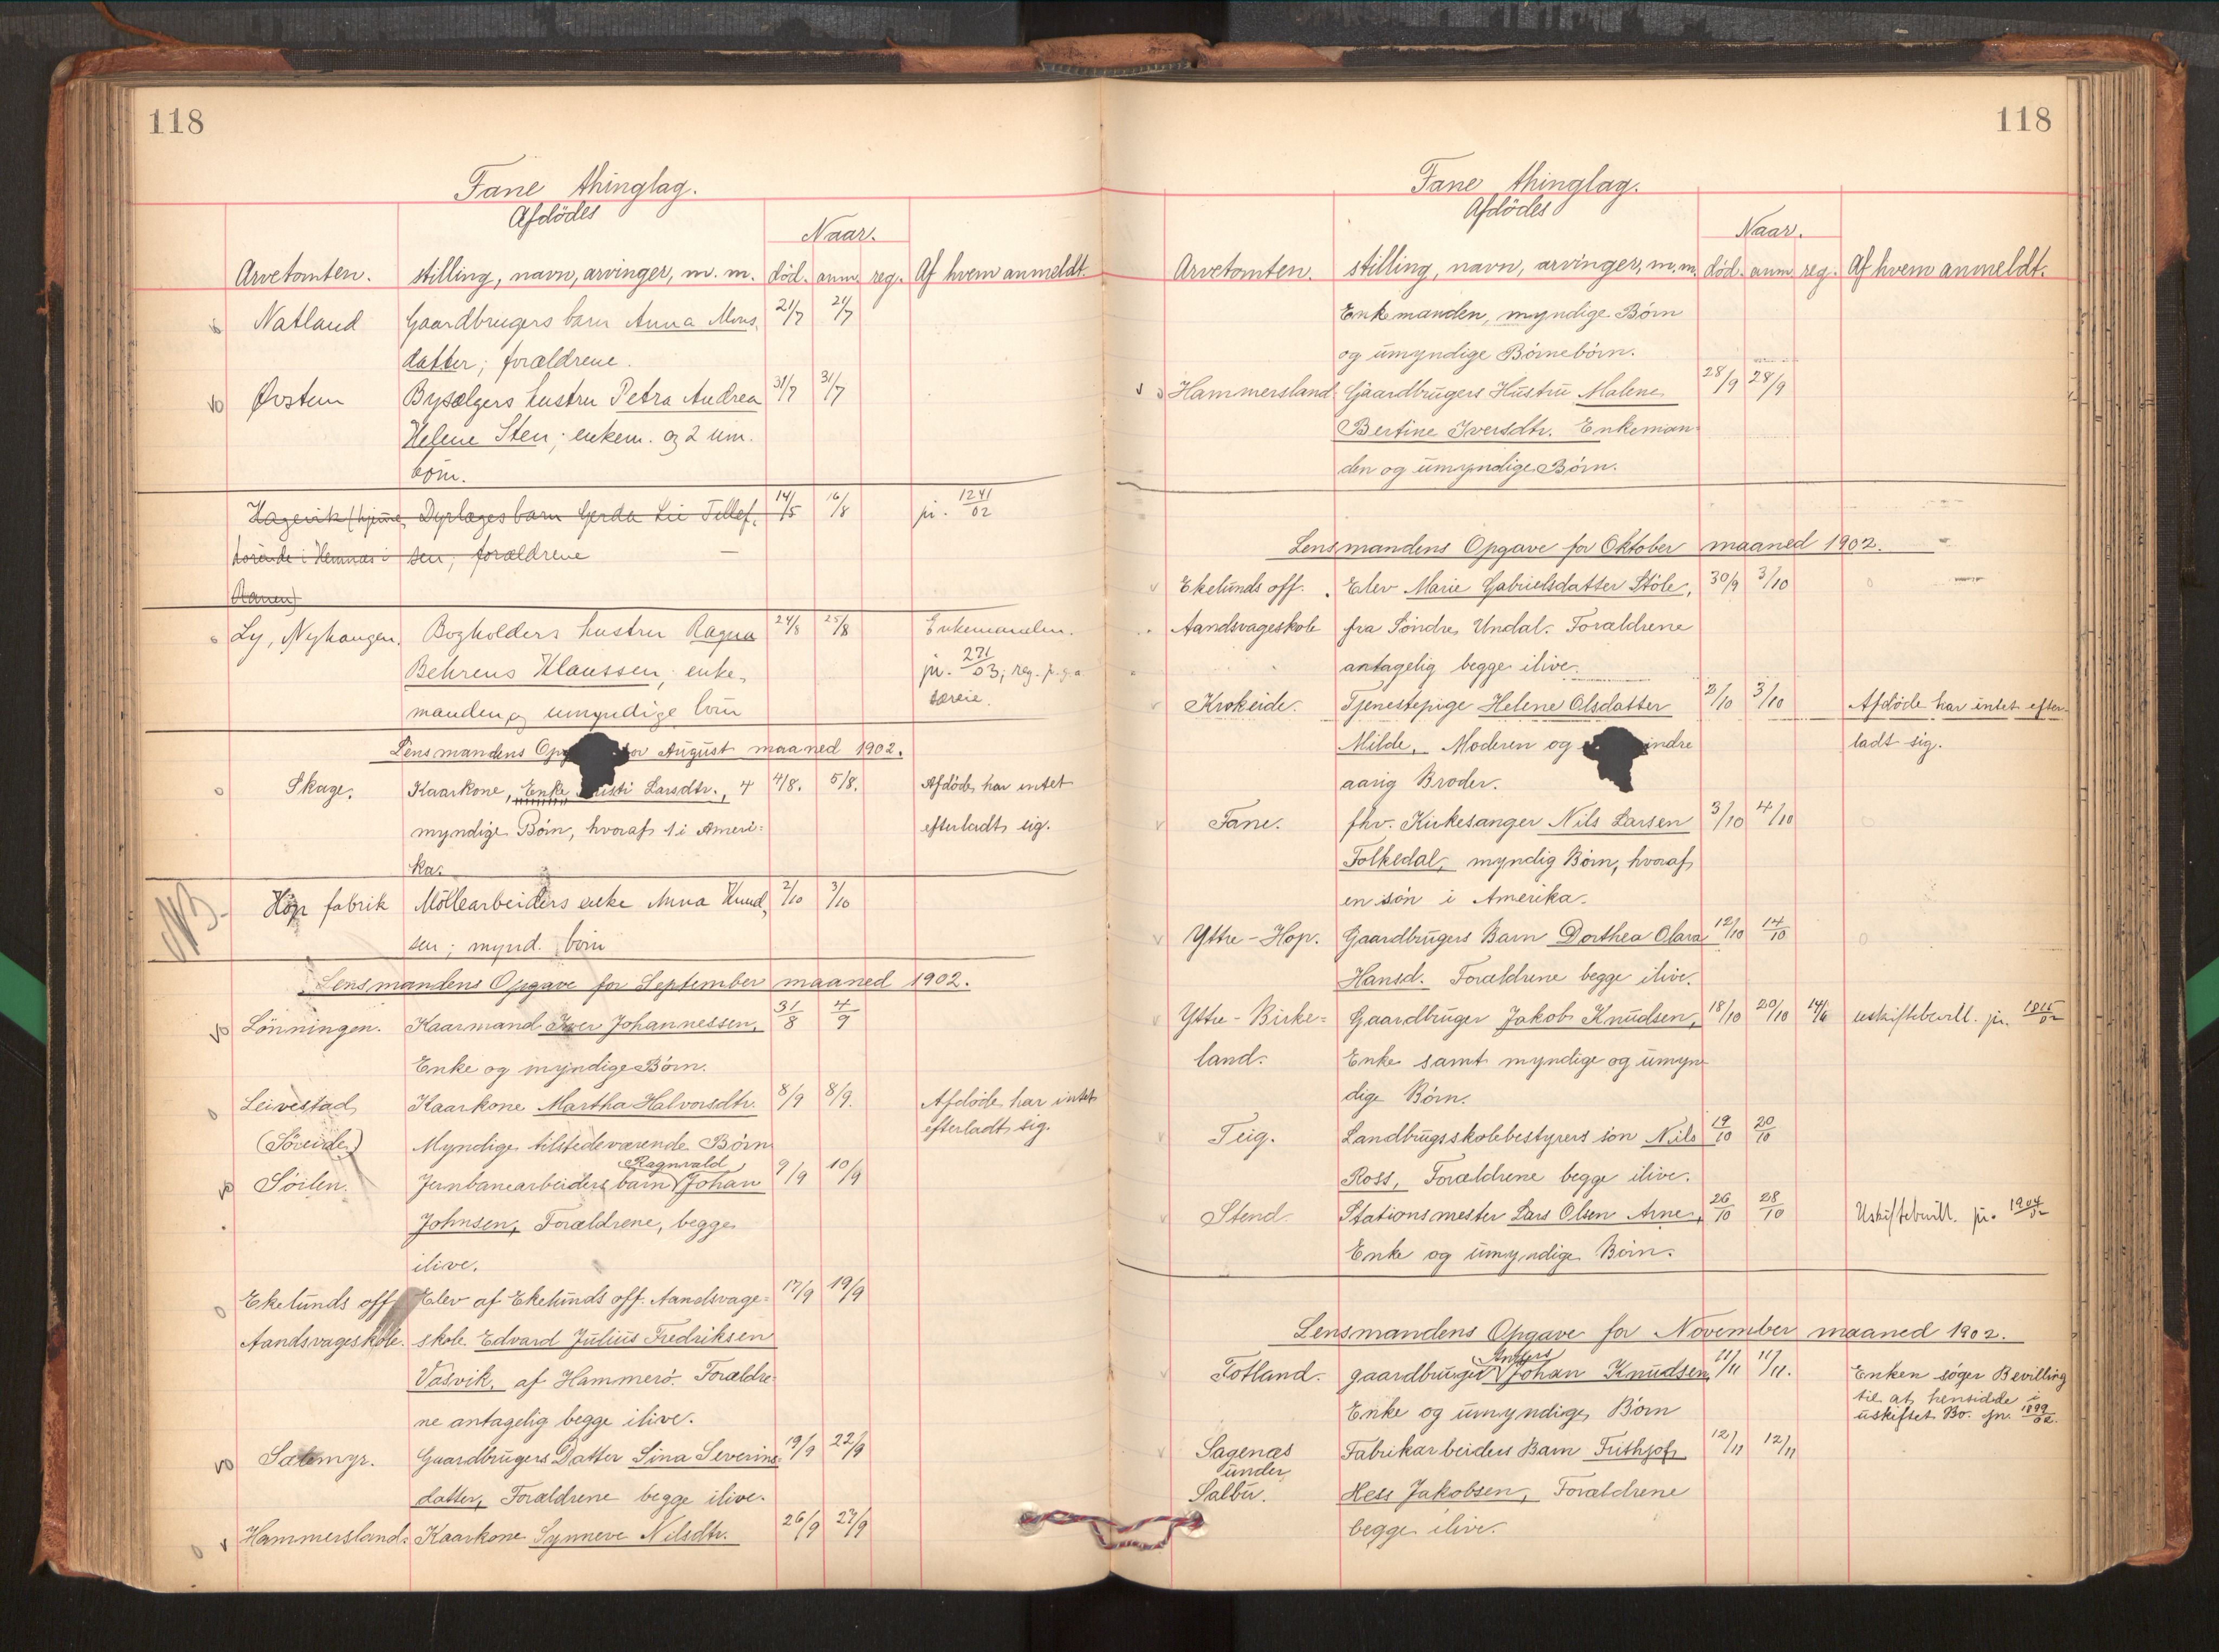 118
Fane thinglag.
Afdödes
Naar.
Arvetomten. stilling, navn, arvinger, m. m. död. anm. reg. Af hvem anmeldt.
Natland Gaardbrugers barn Anna Mons- 21/7 21/7
datter; forældrene.
Øvsten Bysælgers hustru Petra Andrea 31/7 31/7
Helene Sten; enkem. og 2 um.
børn.
Hagevik (hjemme- Dyrlæges barn Gerda Lie Tellef- 14/5 16/8 jr. 1241/02
hörende i Hemnæs i sen; forældrene —
Ranen)
Ly, Nyhaugen. Bogholders hustru Ragna 24/8 25/8 Enkemanden.
Behrens Klaussen; enke- jr. 271/03; reg. p. g. a
manden og umyndige börn særeie.
Lensmandens for August maaned 1902.
Skage. Kaarkone, Enke Larsdtr., 4 4/8. 5/8. Afdöde har intet
myndige Börn, hvoraf 1 i Ameri- efterladt sig.
ka.
NB. Höp fabrik Möllearbeiders enke Anna Knud- 2/10 3/10
sen; mynd. börn
Lensmandens Opgave for September maaned 1902.
Lönningen. Kaarmand Iver Johannessen, 31/8 4/9
Enke og myndige Börn.
Leivestad Kaarkone Martha Halvorsdtr. 8/9 8/9. Afdöde har intet
(Söreide) Myndige tilstedeværende Börn efterladt sig.
Ragnvald
Söilen. Jernbanearbeiders barn Johan 9/9 10/9
Johnsen, Forældrene, begge
ilive.
Ekelunds off. Elev af Ekelunds off. Aandsvage- 17/9 19/9
Aandsvageskole. skole Edvard Julius Fredriksen
Vasvik, af Hammerö. Forældre-
ne antagelig begge ilive.
Sætemyr. Gaardbrugers Datter Sina Severins- 19/9 22/9
datter, Forældrene begge ilive.
Hammersland: Kaarkone Synneve Nilsdtr. 26/9 27/9
118
Fane thinglag.
Afdödes
Naar.
Arvetomten. stilling, navn, arvinger, m. m. död. anm. reg. Af hvem anmeldt.
Enkemanden, myndige Börn
og umyndige Börnebörn.
Hammersland Gaardbrugers Hustru Malene 28/9 28/9
Bertine Iversdtr. Enkeman-
den og umyndige Börn.
Lensmandens Opgave for Oktober maaned 1902.
Ekelunds off. Elev Marie Gabrielsdatter Stöle, 30/9 3/10
Aandsvageskole fra Söndre Undal. Forældrene
antagelig begge ilive.
Krokeide. Tjenestepige Helene Olsdatter 2/10 3/10 Afdöde har intet efter-
Milde, Moderen og indre ladt sig.
aarig Broder.
Fane. fhv. Kirkesanger Nils Larsen 3/10 4/10
Folkedal, myndig Börn, hvoraf
en sön i Amerika.
Yttre-Hop. Gaardbrugers Barn Dorthea Olava 12/10 14/10
Hansd. Forældrene begge ilive.
Yttre-Birke- Gaardbruger Jakob Knudsen, 18/10 20/10 uskiftebevill. jr. 1815/02
land. Enke samt myndige og umyn-
dige Börn.
Teig. Landbrugsskolebestyrers sön Nils 19/10 20/10
Ross, Forældrene begge ilive.
Stend. Stationsmester Lars Olsen Arne, 26/10 28/10 Uskiftebevill. jr. 1904/02
Enke og umyndige Börn.
Lensmandens Opgave for November maaned 1902.
Anders
Totland. gaardbruger Johan Knudsen, 11/11 11/11. Enken söger Bevilling
til at hensidde i
Enke og umyndige Börn uskiftet Bo. jr. 1899/02.
Sagenæs Fabrikarbeiders Barn Frithjof 12/11 12/11
under
Salbu. Hess Jakobsen, Forældrene
begge ilive.